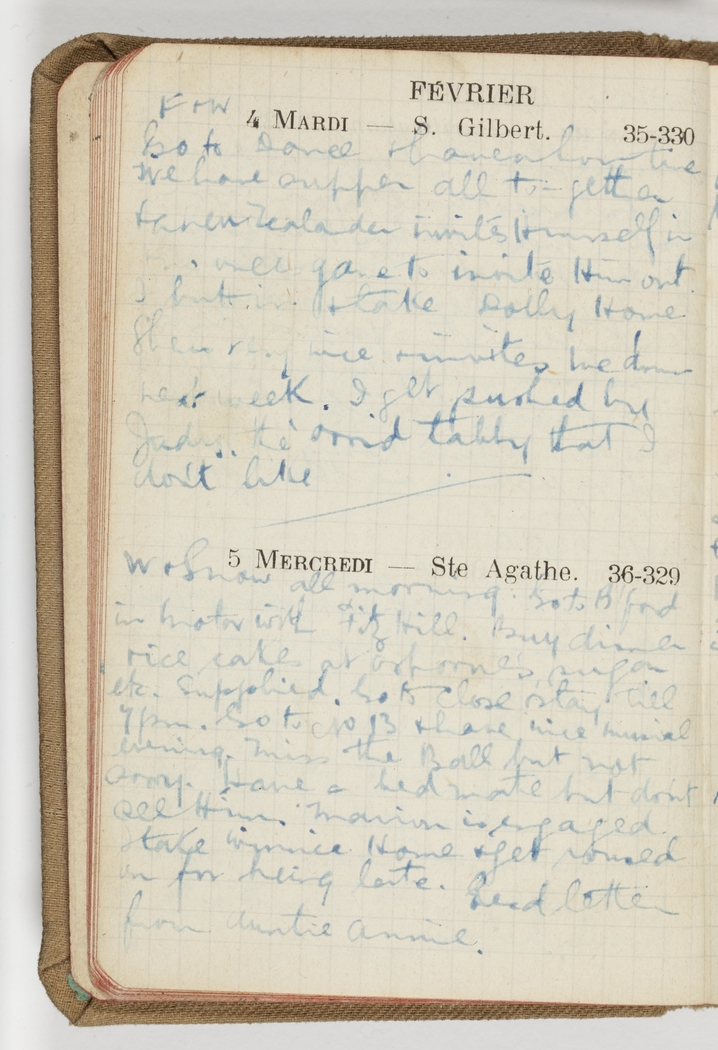 FÉVRIER
F+W
4 MARDI — S. Gilbert. 35-330
Go to Dance + have a
We have supper all to-gether
+ a New Zealander invites Himself in
gave to invite Him out
I butt in + take Dolly Home
She is very nice + invites me down
next week. I get pushed by
Judy. the orrid tabby that I
don't like
5 MERCREDI — Ste Agathe. 36-329
W + Snow all morning. Go to B'ford
in motor with Fitz Hill. Buy dinner
rice cakes at Osbornes, sugar
etc. Supplied. Go to Close + stay till
7pm. Go to No 13 + have nice musical
evening. Miss the Ball but not
sorry. Have a bed mate but don't
see Him. Marion is engaged
I take Winnie Home + get roused
on for being late. Send letter
from Auntie Annie.